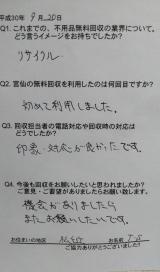 平成30年 9月 20日
Q1. これまでの、不用品無料回収の業界について、
どう言うイメージをお持ちでしたか?
リサイクル
Q2. 宮仙の無料回収を利用したのは何回目ですか?
初めて利用しました。
Q3. 回収担当者の電話対応や回収時の対応は
どうでしたか?
印象・対応が良かったです。
Q4. 今後も回収をお願いしたいと思われましたか?
ご意見・ご要望がありましたらお願い致します。
機会がありましたら
またお願いしたいです。
お住まいの地区
お名前 T.S
ご協力ありがとうございました!